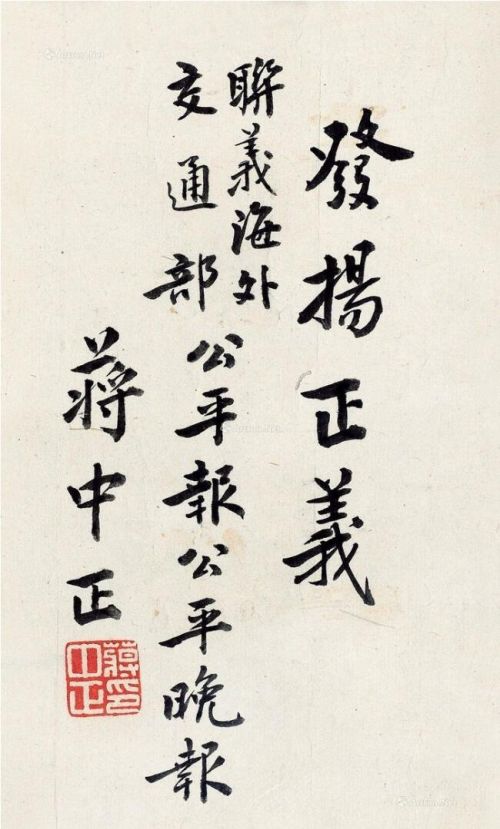 發揚正義
聯義海外
交通部
公平報公平晚報
蔣中正
蔣印
中正